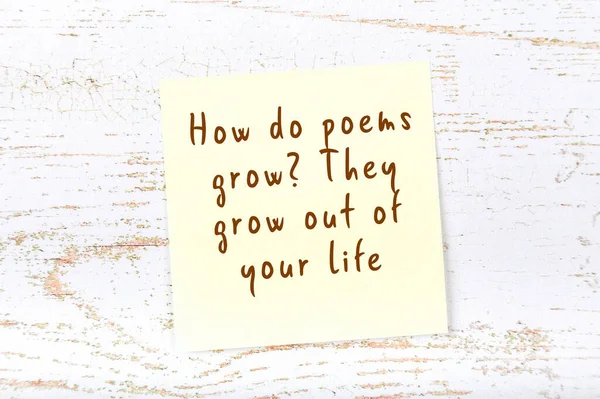 How do poems
grow? They
grow out of
your life